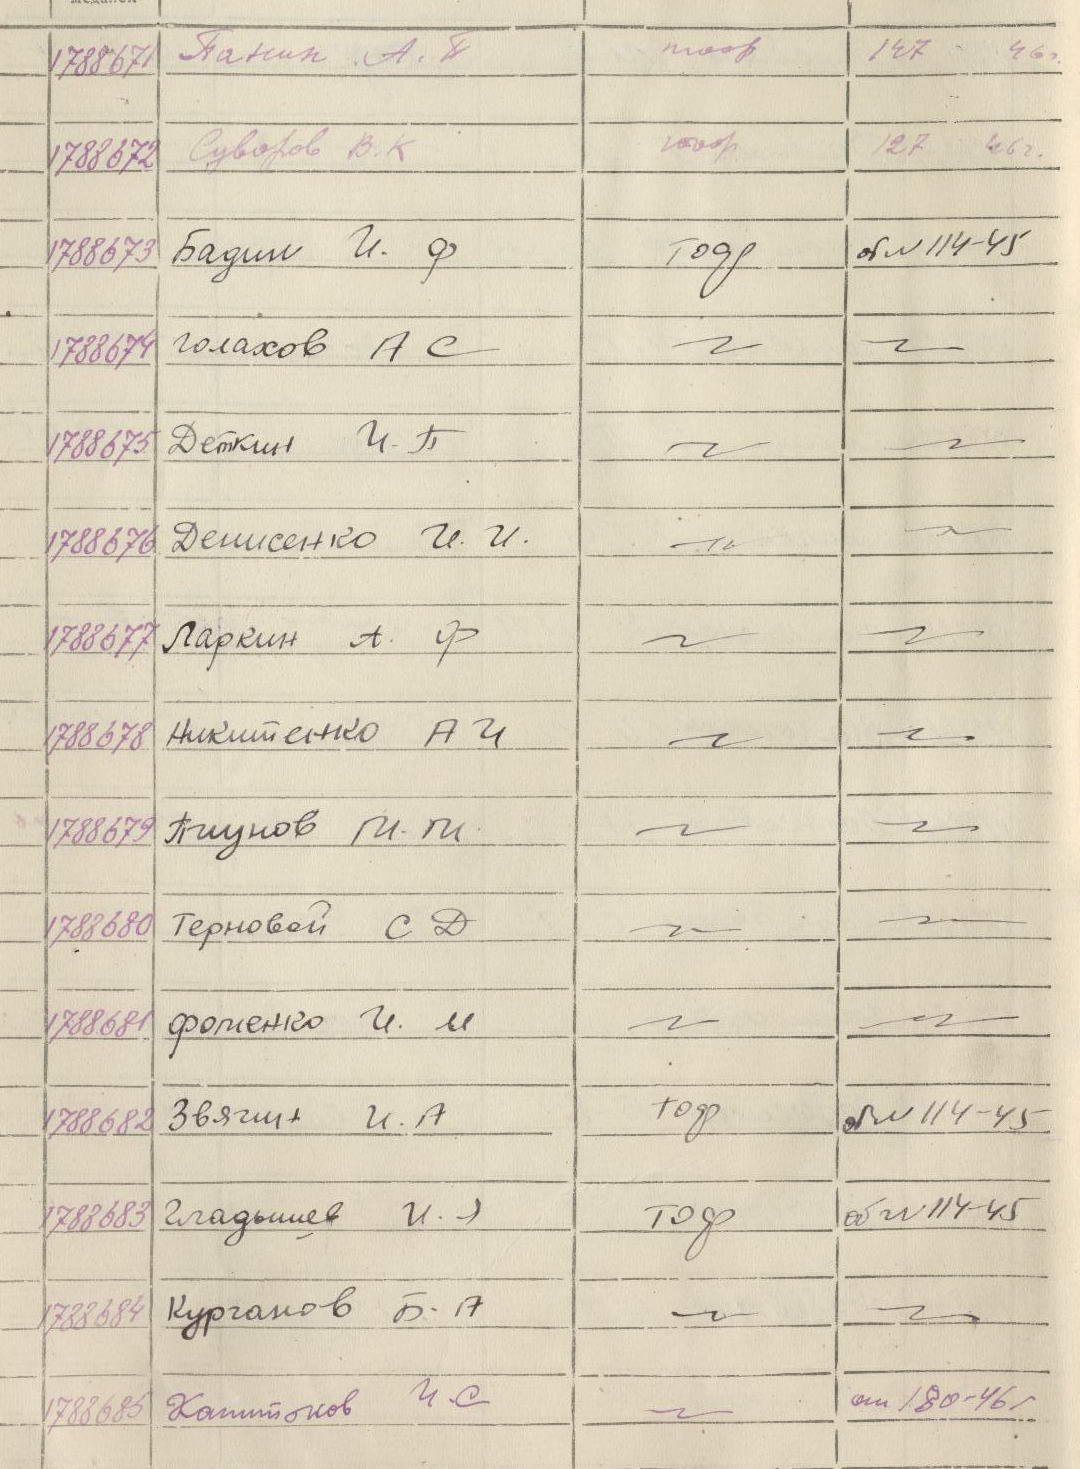 медалей
1788671 Панин А. П тоф 147 46г.
1788672 Суворов В. К тоф 127 46г.
1788673 Бадин И. Ф ТОФ об N 114-45
1788674 Голахов А С —〃— —〃—
1788675 Деткин И. П —〃— —〃—
1788676 Денисенко И. И. —〃— —〃—
1788677 Ларкин А. Ф —〃— —〃—
1788678 Никитенко А И —〃— —〃—
1788679 М. М. —〃— —〃—
1788680 Терновой С Д —〃— —〃—
1788681 Фоменко И. М —〃— —〃—
1788682 Звягин И. А ТОФ об N 114-45
1788683 Гладышев И. Я ТОФ об N 114-45
1788684 Курганов Б. А —〃— —〃—
1788685 И. С —〃— от 180-46г